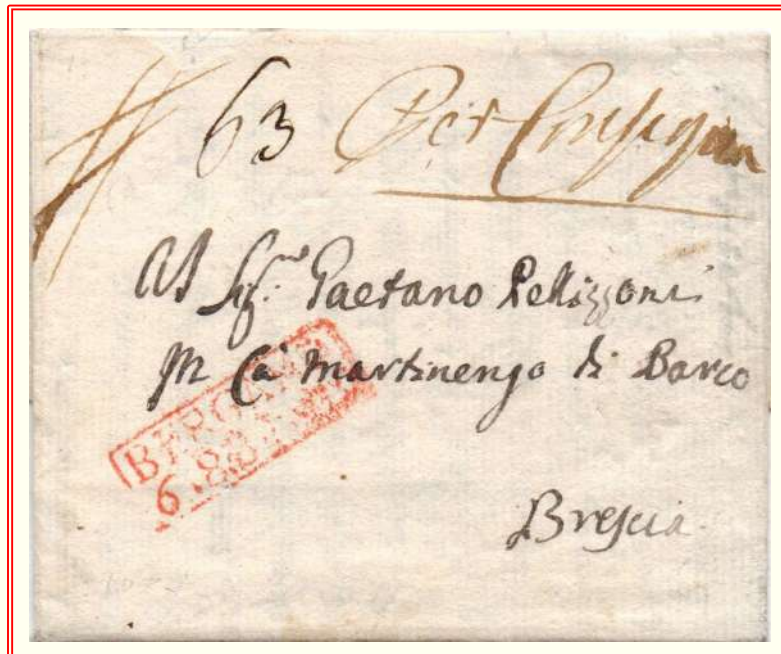 63 Per Consegna
Al Sig.re Gaetano Pellizzoni
In Cà Martinengo di Barco
BERGAMO
6.
Brescia